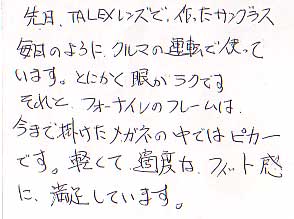 先日、TALEXレンズで、作ったサングラス
毎日のように、クルマの運転で使って
います。とにかく眼がラクです
それと、フォーナインのフレームは、
今まで掛けたメガネの中ではピカー
です。軽くて、適度な、フィット感
に、満足しています。